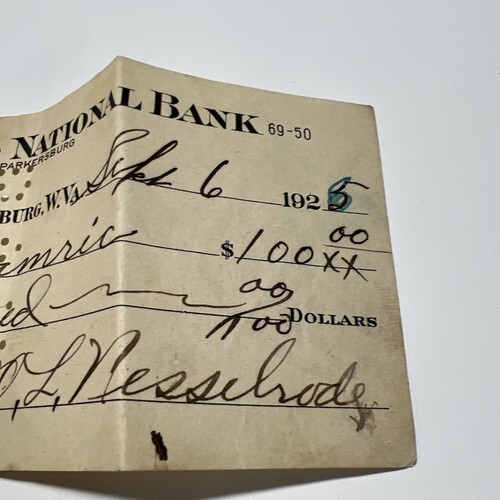 NATIONAL BANK 69-50
PARKERSBURG
BURG, W. VA. Sept 6 1925
amric $100 00/XX
ed 00/100 DOLLARS
L. Nesselrode